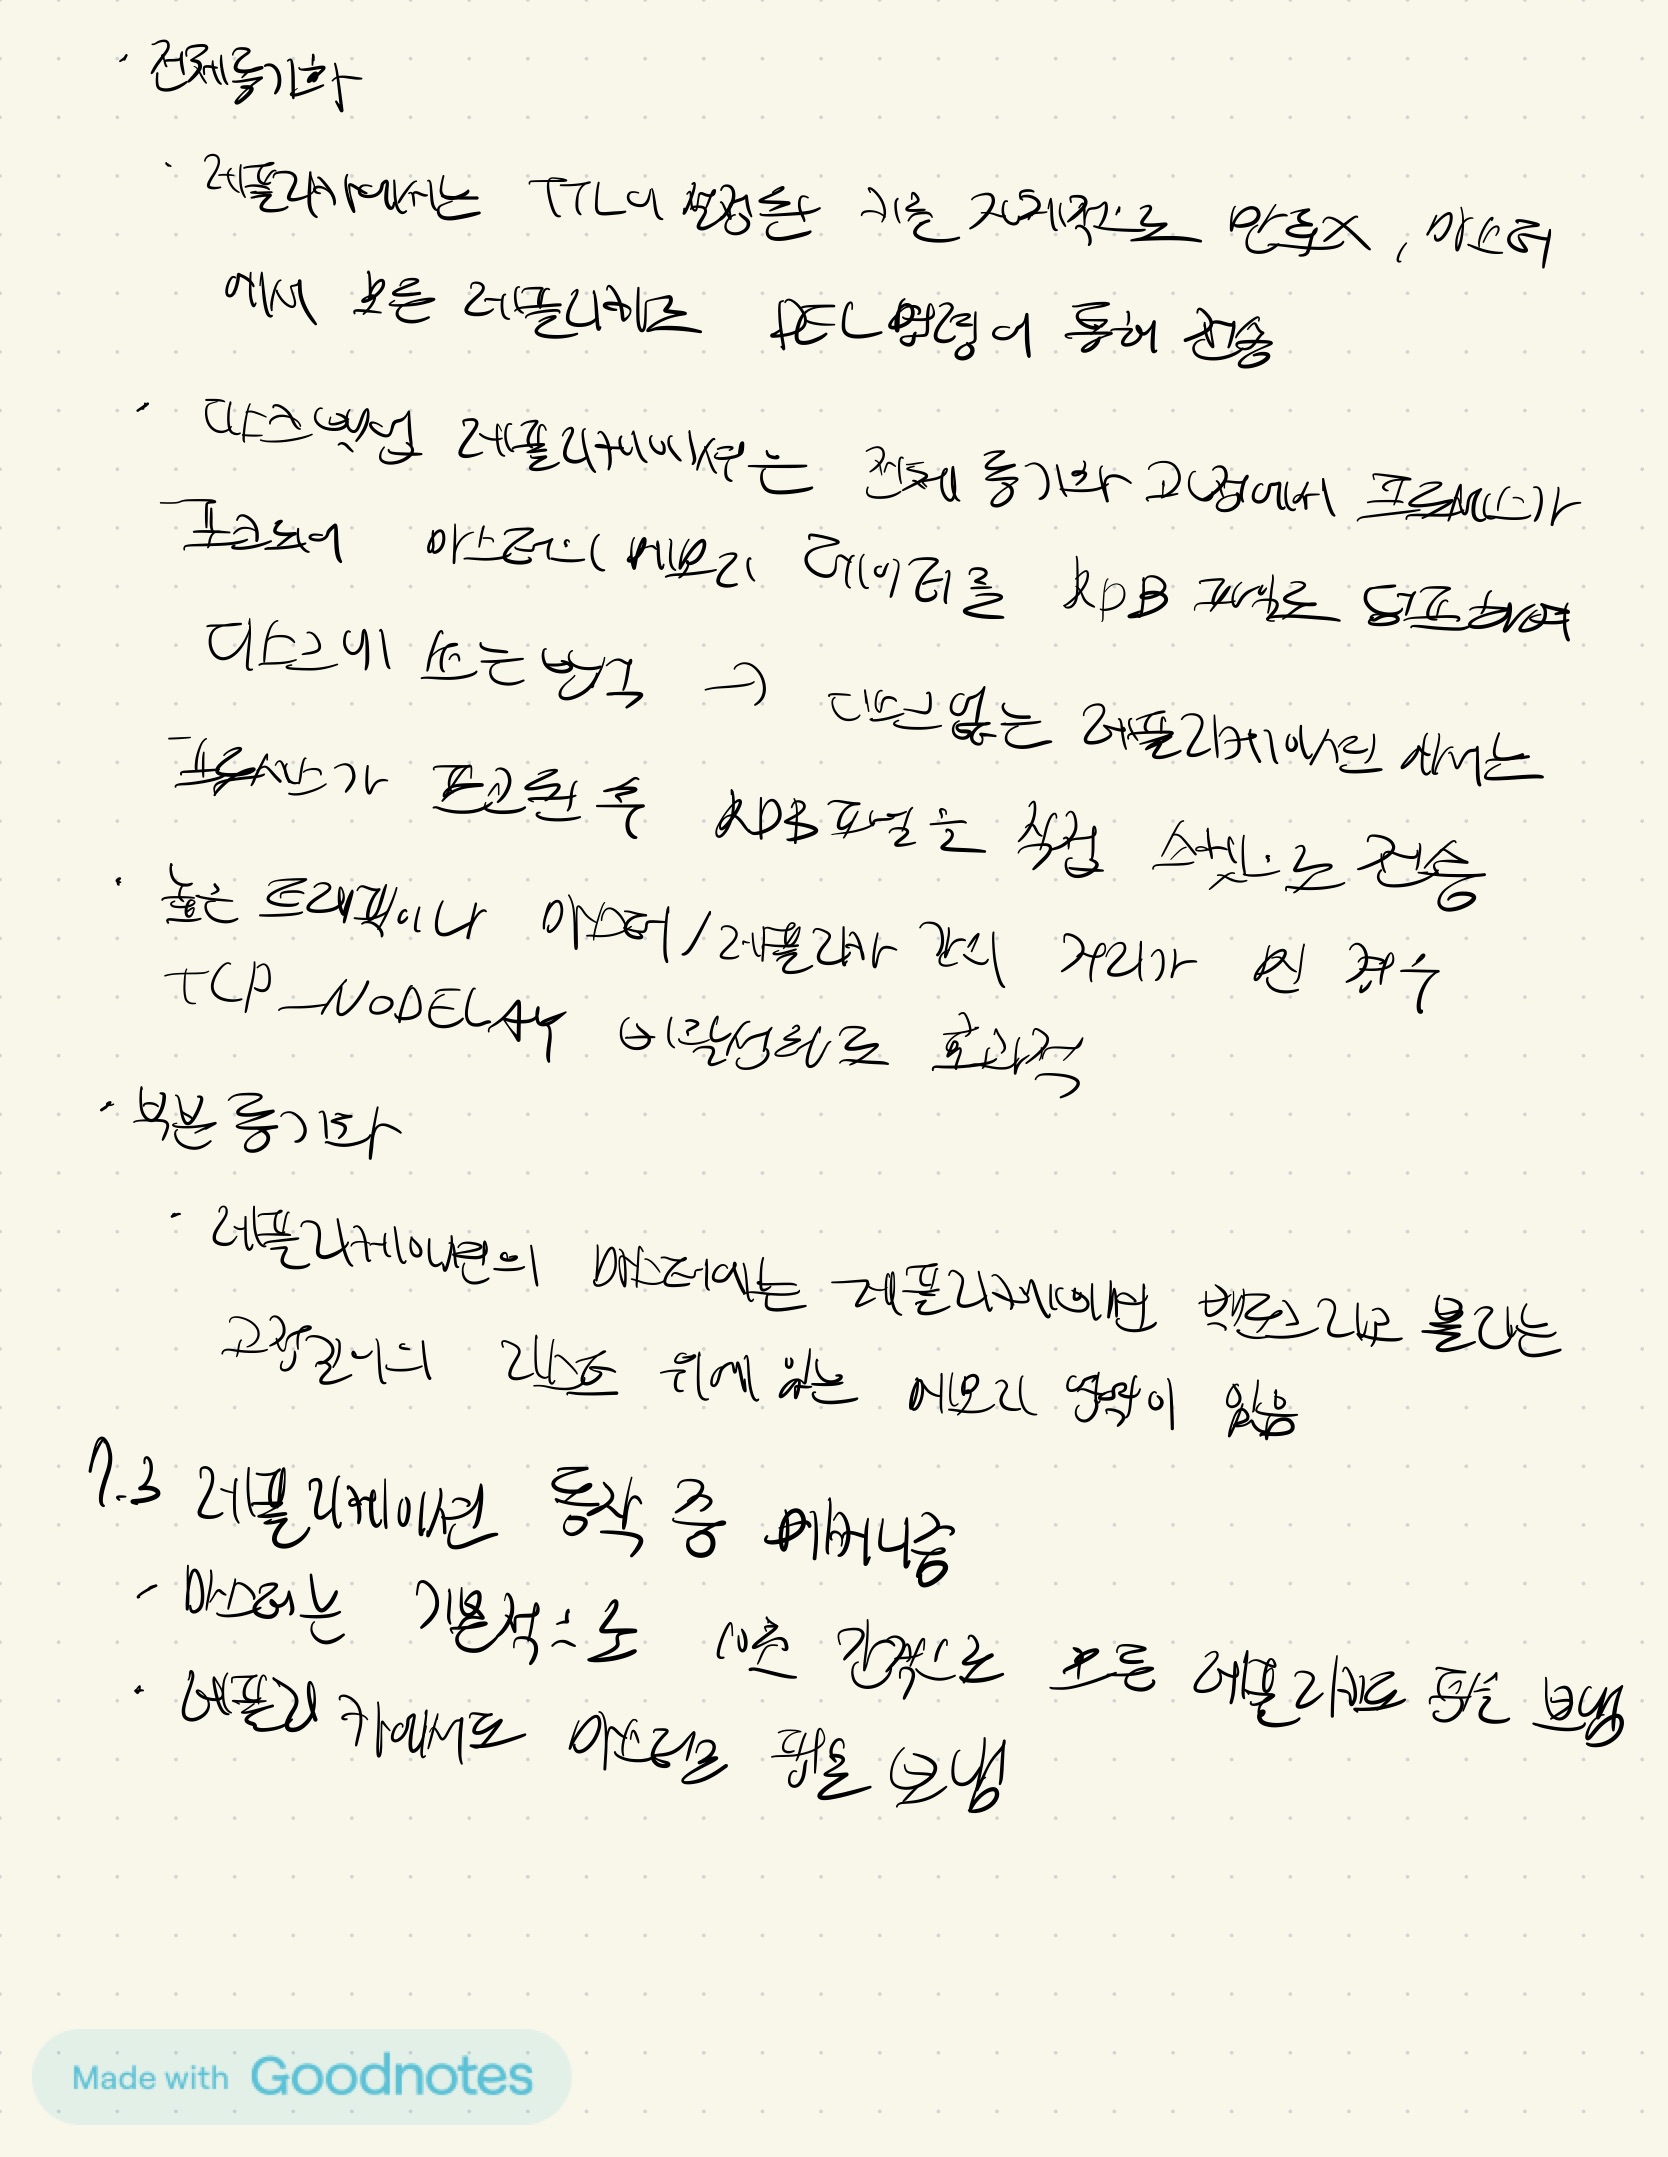 · 전체동기화
· 레플리카에서는 TTL이 설정된 키를 자체적으로 만료X, 마스터
에서 모든 레플리카로 DEL명령어 통해 전송
· 디스크백업 레플리케이션은 전체 동기화 과정에서 프로세스가
포크되어 마스터의 메모리 데이터를 RDB 파일로 덤프하여
디스크에 쓰는 방식 → 디스크없는 레플리케이션 에서는
프로세스가 포크된 후 RDB파일을 직접 소켓으로 전송
· 높은 트래픽이나 마스터/레플리카 간의 거리가 먼 경우
TCP_NODELAY 비활성화로 효과적
· 부분 동기화
· 레플리케이션의 마스터에는 레플리케이션 백로그라고 불리는
고정길이의 리스트 위에 있는 메모리 영역이 있음
7.3 레플리케이션 동작 중 메커니즘
- 마스터는 기본적으로 10초 간격으로 모든 레플리카로 핑을 보냄
· 레플리카에서도 마스터로 핑을 보냄
Made with Goodnotes